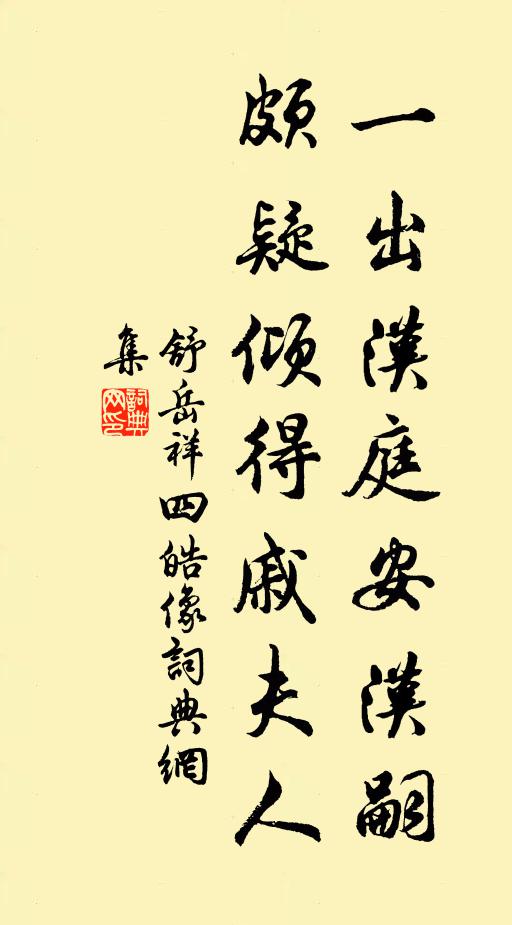 一出漢庭安漢嗣
頗疑傾得戚夫人
舒岳祥四皓像詞典網
集
詞典
网印